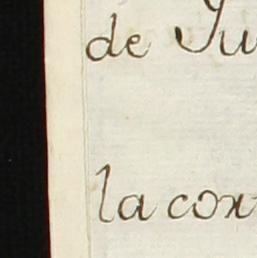 de Ju
la con